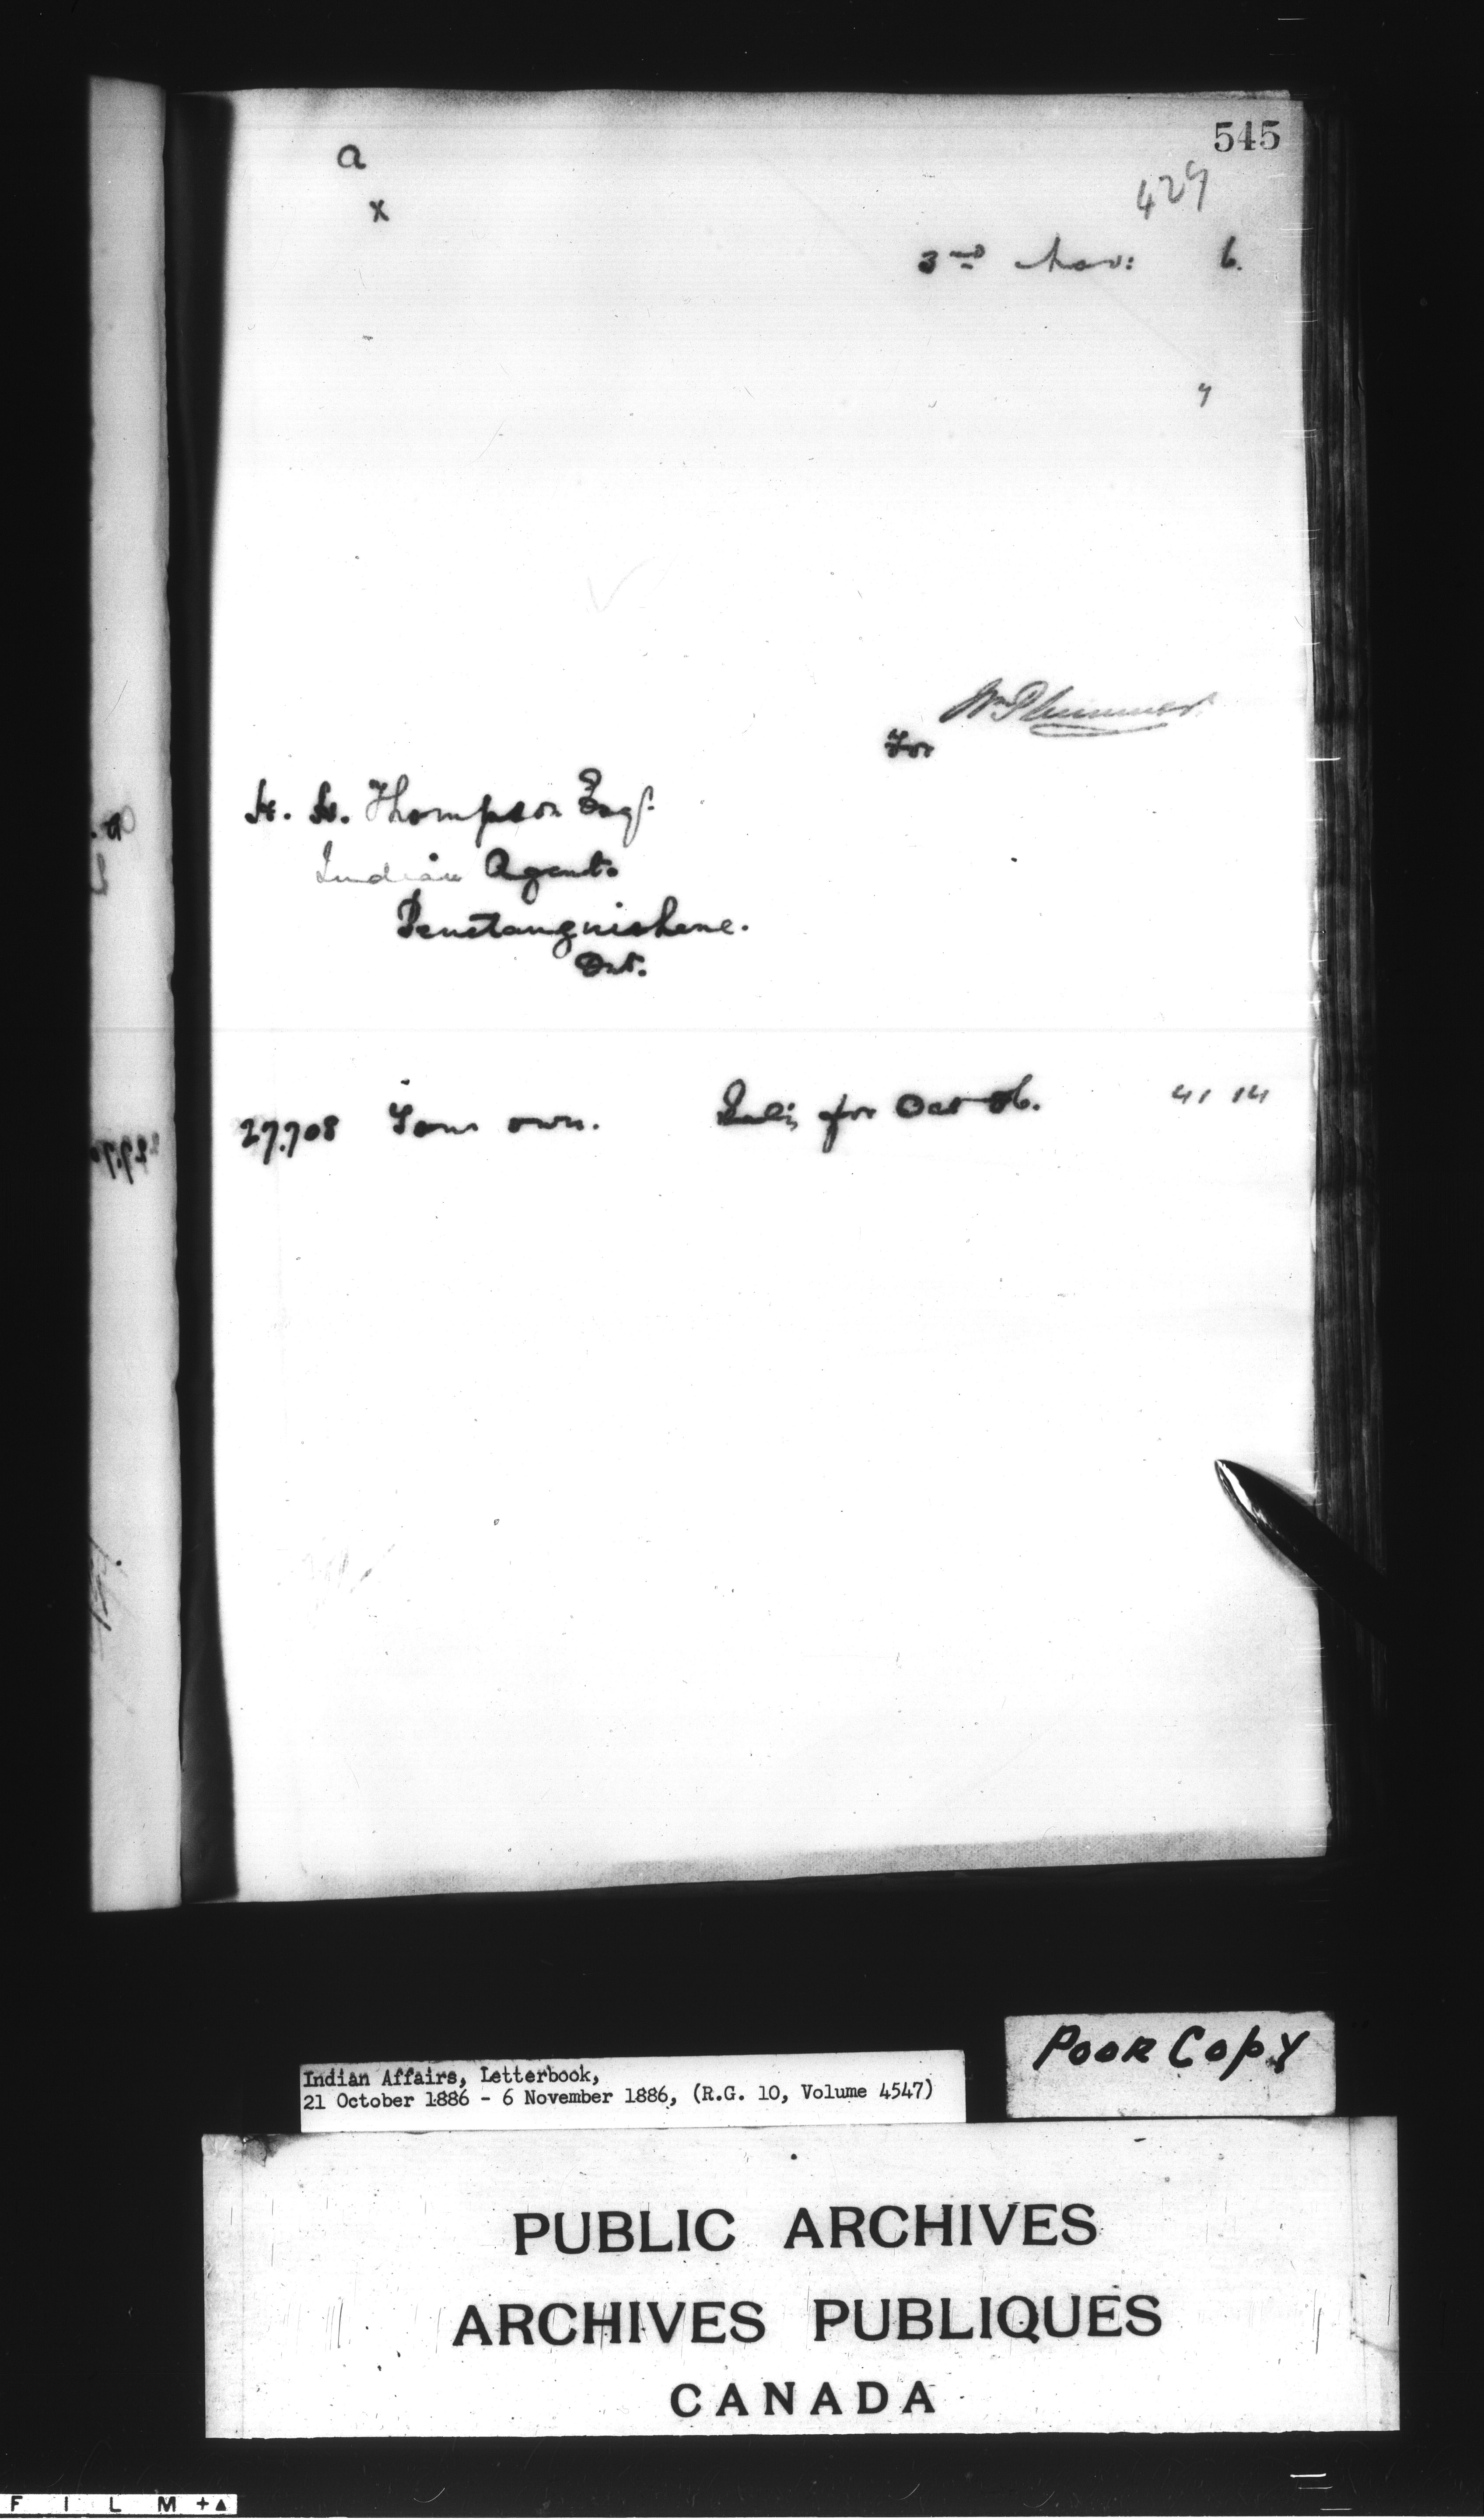 545
a
429
x
3rd Nov: 6.
7
Wm Plummer
For
H. H. Thompson Esqr.
Indian Agent.
Penetanguishene.
Ont.
27.708 Your own. for Oct 86. 41 14
Poor Copy
Indian Affairs, Letterbook,
21 October 1886 - 6 November 1886, (R.G. 10, Volume 4547)
PUBLIC ARCHIVES
ARCHIVES PUBLIQUES
CANADA
FILM